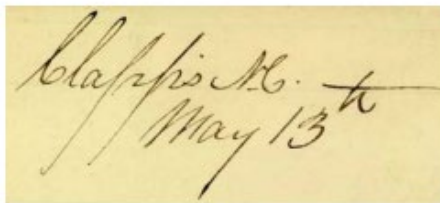 Clapp's N.C.
May 13th